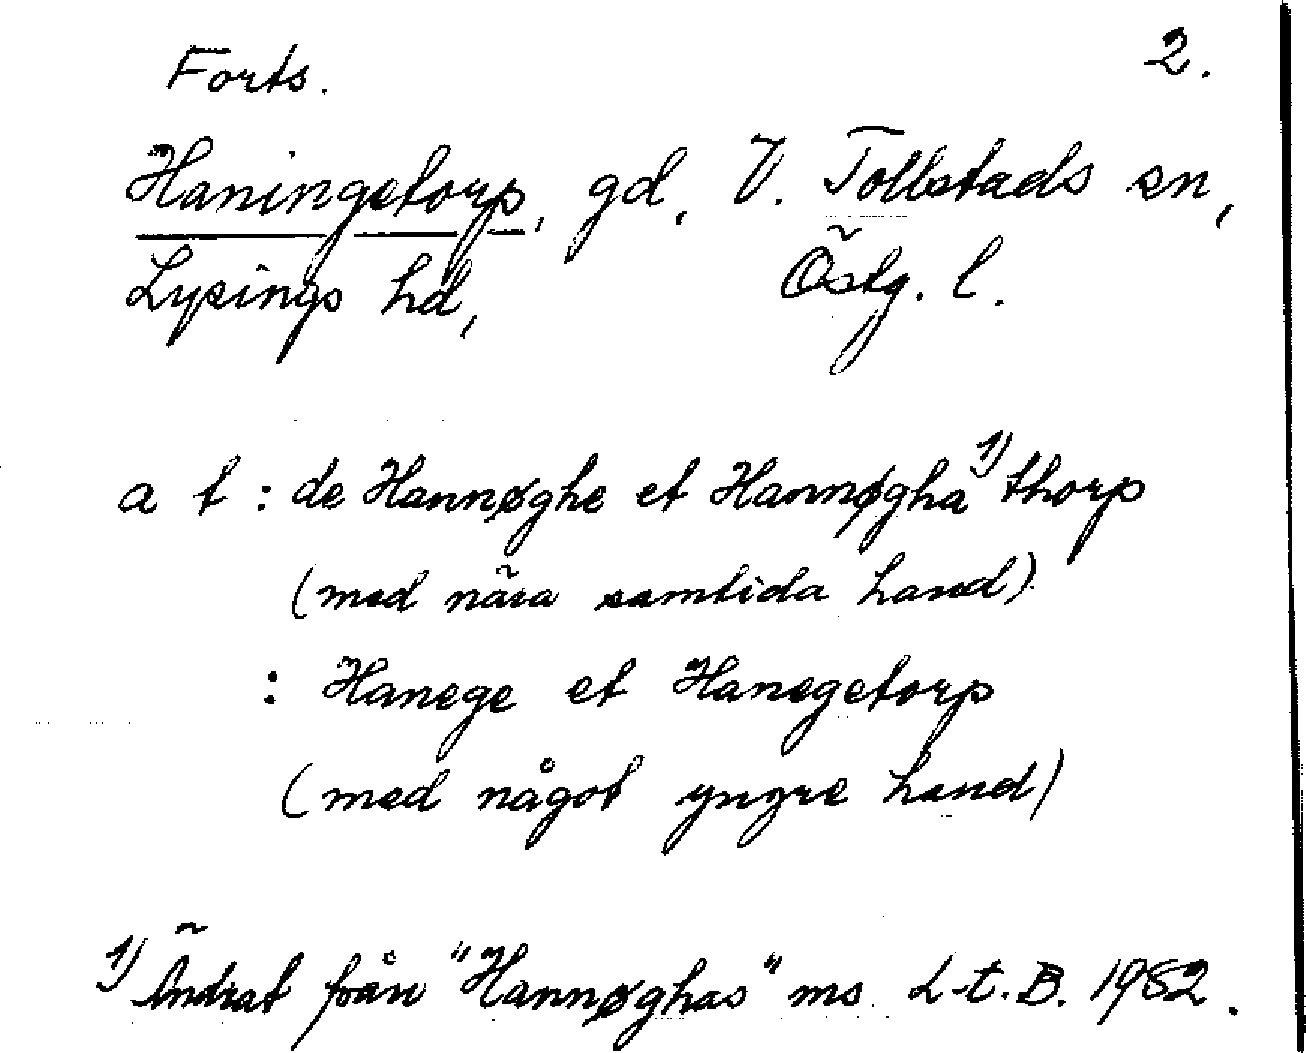 Forts. 2.
Haningetorp, gd, V. Tollstads sn,
Lysings hd, Östg. l.
a t : de Hannøghe et Hannøgha 1) thorp
(med nära samtida hand)
: Hanege et Hanegetorp
(med något yngre hand)
1) Ändrat från "Hannøghas" ms. L-t. B. 1982.